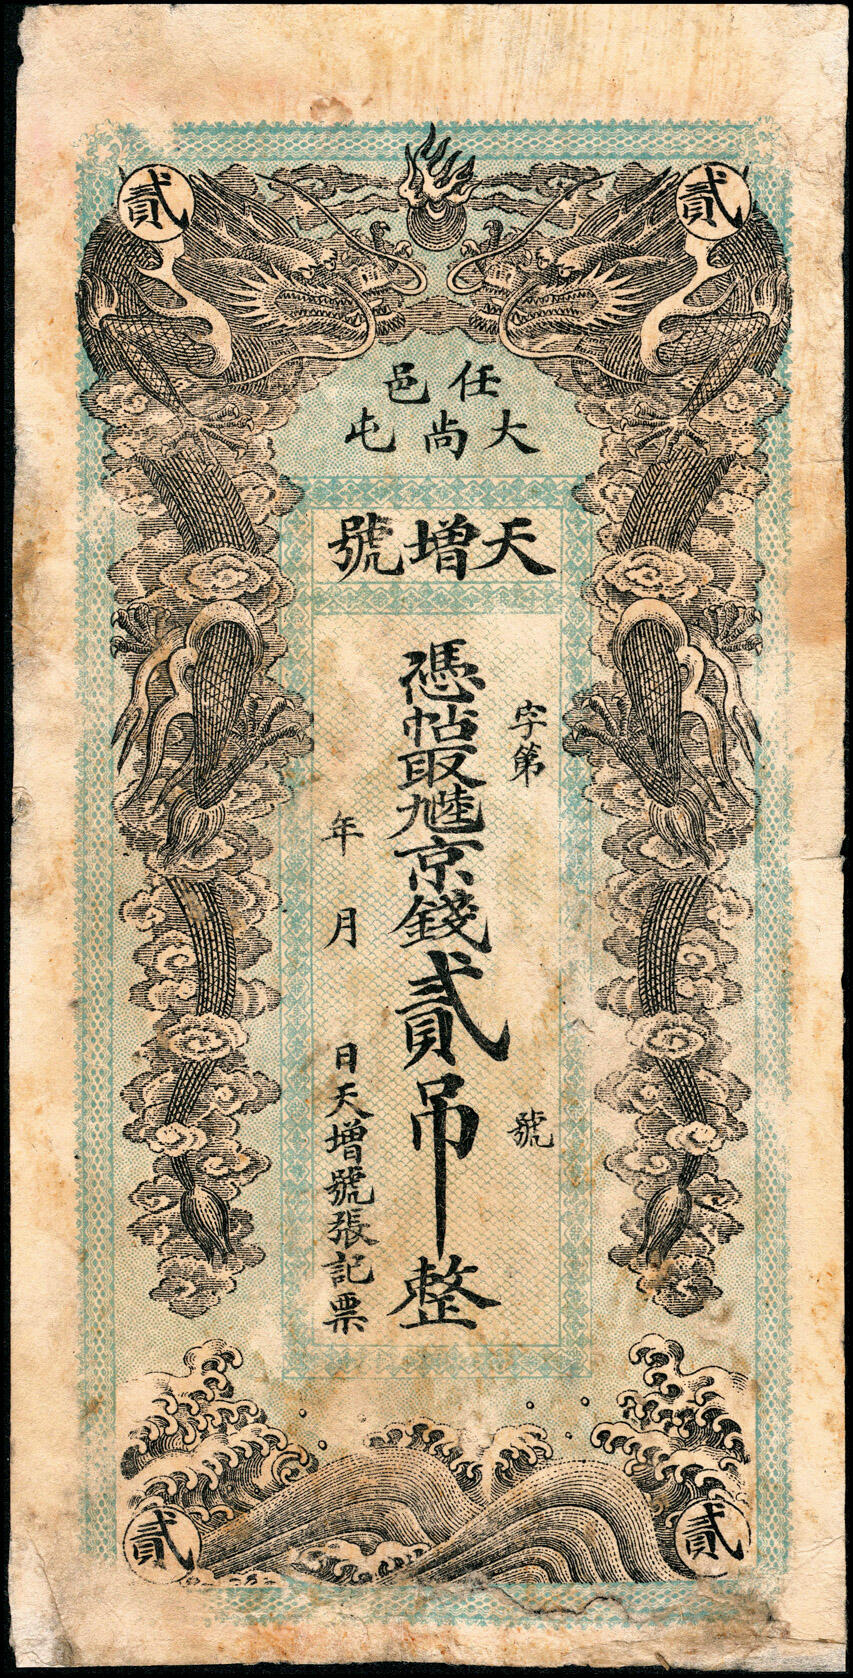 貳
貳
任邑
大尚屯
天增號
字第 號
憑帖取九陸京錢貳吊整
年 月 日天增號張記票
貳
貳